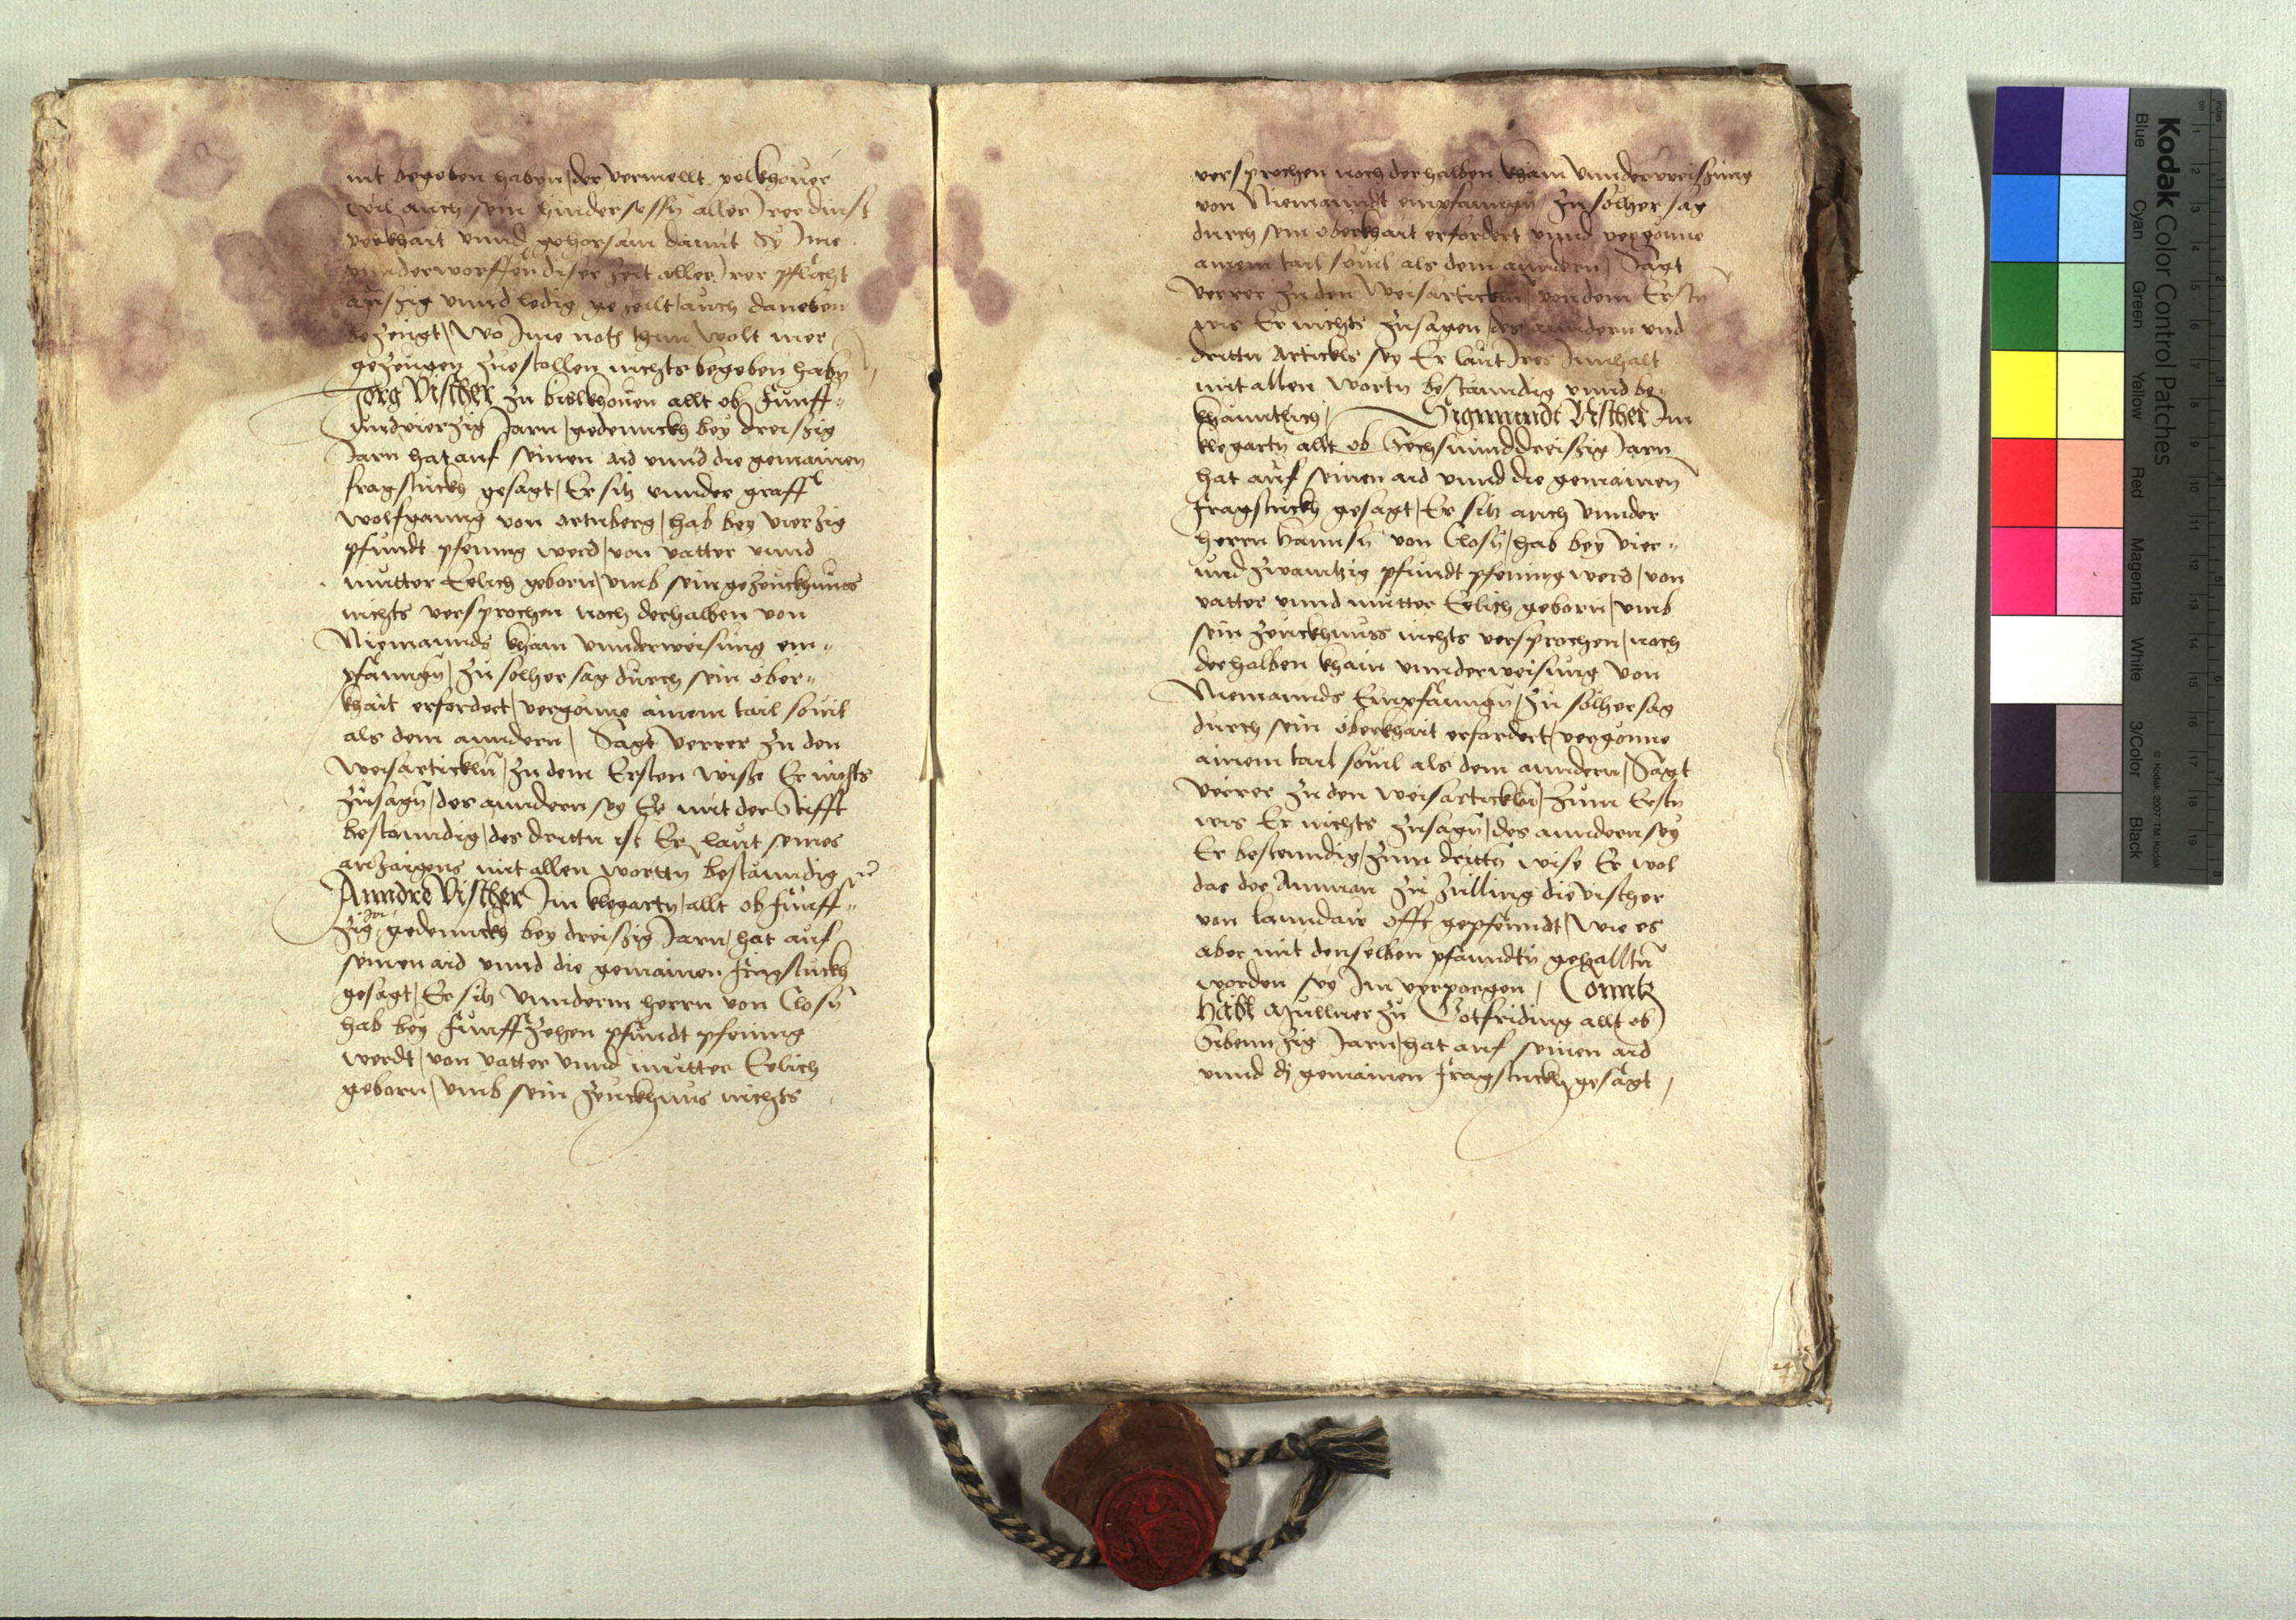 nit begeben haben, der vermellt pelkhover
wil auch sein hindersessn aller Irer dinst
perkhait vnnd gehorsam damit Sy Ime
vnnderworffen diser Zeit aller Irer pflicht
ausßig vnnd ledig gezellt, auch daneben
bezeugt, Wo Ime nots thun wolt mer
gezeugen zuestellen nichts begeben habn
Jorg Vischer zu bislkhouen allt ob Funff-
vndvierzig Jarn, gedennckh bey dreissig
Jarn hat auf seinen aid vnnd die gemainen
fragstuckh gesagt, Er sitz vnnder graff
wolfganng von ortnberg, hab bey vierzig
pfundt pfening werd, von vatter vnnd
mutter Eelich geborn, vmb sein gezeuckhnuss
nichts versprochen noch derhalben von
Niemannds khain vnnderweisung em-
pfanngn, Zu solher sag durch sein ober-
khait erfordert, vergonne ainem tail souil
als dem anndern, Sagt verrer zu den
Weisarticklñ, Zu dem Ersten wisse Er nichts
zusagñ, des anndern sey Er mit der Stifft
bestanndig, des drittn ist Er laut seines
anzaigens mit allen wortten bestanndig
Anndre Vischer Im klegartn, allt ob Funff-
zig Jar, gedennckh bey dreissig Jarn, hat auf
seinen aid vnnd die gemainen Fragstuckh
gesagt, Er sitz vnnderm herrn von Closñ
hab bey Funffzehen pfundt pfening
werdt, von vatter vnnd mutter Eelich
geborn, vmb sein zeuckhnus nichts
versprochen noch derhalben khain vnnderweissung
von Niemanndt empfanngñ, Zu solher sag
durch sein oberkhait erfordert vnnd vergonne
ainem tail souil als dem anndern, Sagt
verrer zu den Weisarticklñ, von dem Erstn
wis Er nichts zusagen, des anndern vnd
drittn Artickls sey Er laut Ires Innhalt
mit allen wortn bestanndig vnnd be-
khanntlich, Sigmundt Vischer Im
klegartn allt ob Sechsunnddreissig Jarn
hat auf seinen aid vnnd die gemainen
Fragstuckh gesagt, Er sitz auch vnnder
herrn Hannsñ von Closñ, hab bey vier-
undzwantzig pfundt pfening werd, von
vatter vnnd mutter Eelich geborn, vmb
sein zeuckhnuss nichts versprochen, noch
derhalben khain vnnderweisung von
Niemannds Empfanngñ, Zu solher sag
durch sein oberkhait erfordert, vergonne
ainem tail souil als dem anndern, Sagt
verrer zu den weisarticklñ, Zum Erstn
wis Er nichts zusagñ, des anndern sey
Er bestenndig, Zum drittñ wise Er wol
das der Amman zu Zulling die vischer
von lanndaw offt gepfenndt, Wie es
aber mit denselben pfanndtñ gehalltñ
worden sey Im verporgen, Conntz
Häkl Mullner zu Gotfriding allt ob
Sibennzig Jarn, hat auf seinen aid
vnnd dj gemainen Fragstuckh gesagt,
Kodak Color Control Patches
Blue
Cyan
Green
Yellow
Red
Magenta
White
3/Color
Black
© Kodak, 2007 TM Kodak